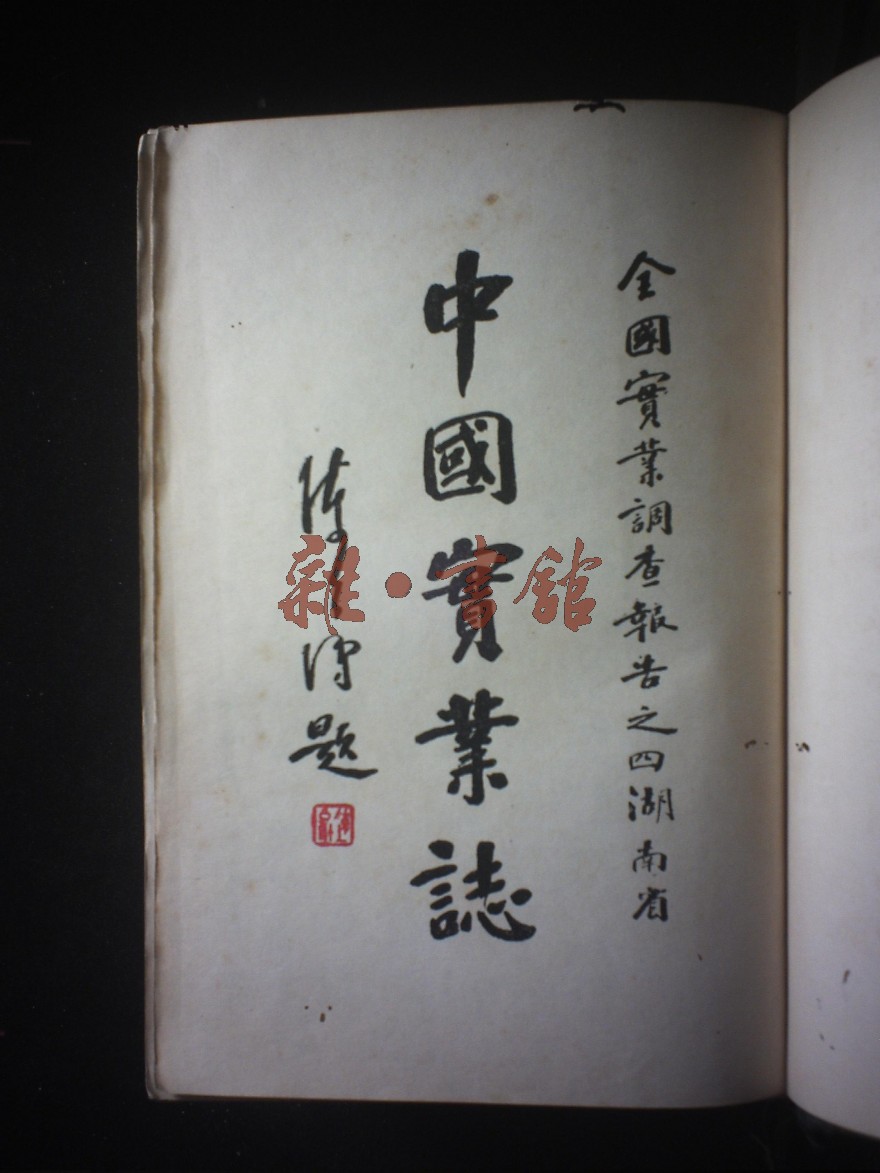 全國實業調查報告之四湖南省
中國實業誌
陳公博題
雜·書館